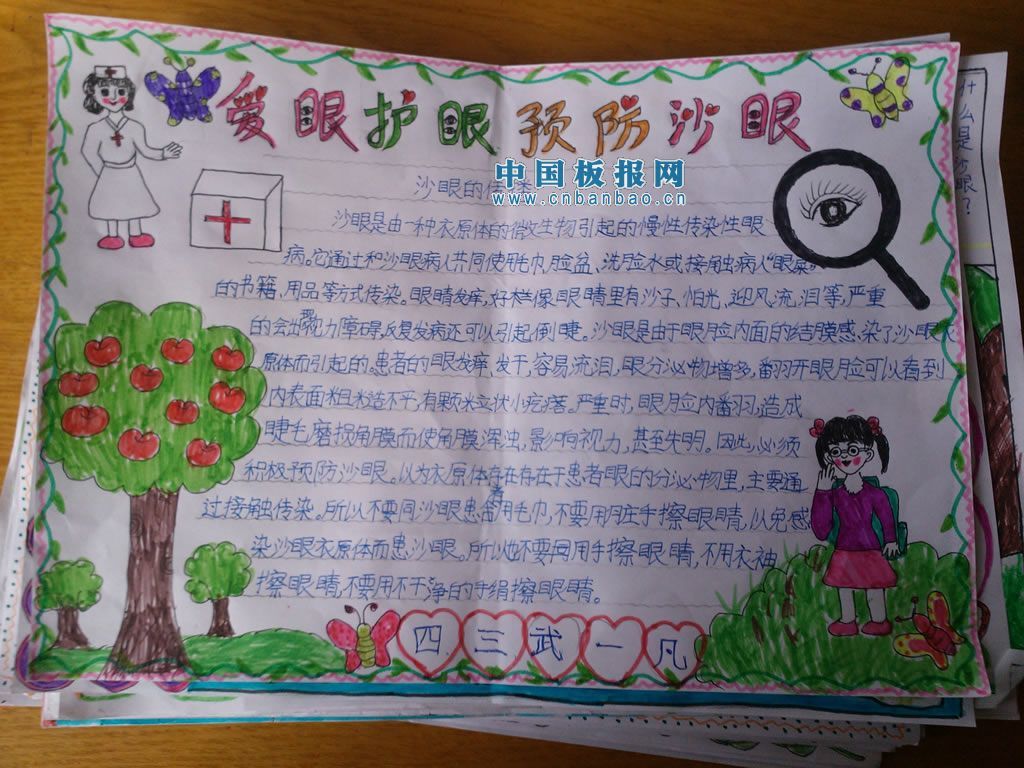 爱眼护眼预防沙眼
中国板报网
www.cnbanbao.cn
沙眼的传
沙眼是由一种衣原体的微生物引起的慢性传染性眼
病。它通过和沙眼病人共同使用毛巾、脸盆、洗脸水或接触病人"眼屎"
的书籍、用品等方式传染。眼睛发痒,好样像眼睛里有沙子、怕光、迎风流泪等,严重
的会出现视力障碍,反复发病还可以引起倒睫。沙眼是由于眼脸内面的结膜感染了沙眼衣
原体而引起的。患者的眼发痒、发干,容易流泪,眼分泌物增多,翻开眼脸可以看到
内表面粗糙不平,有颗粒状小疙瘩。严重时,眼脸内翻,造成
睫毛磨损角膜而使角膜浑浊,影响视力,甚至失明。因此,必须
积极预防沙眼。以为衣原体存在存在于患者眼的分泌物里,主要通
过接触传染。所以不要同沙眼患者用毛巾,不要用脏手擦眼睛,以免感
染沙眼衣原体而患沙眼。所以也不要用手擦眼睛,不用衣袖
擦眼睛,不要用不干净的手绢擦眼睛。
四三武一凡
什么是沙眼?